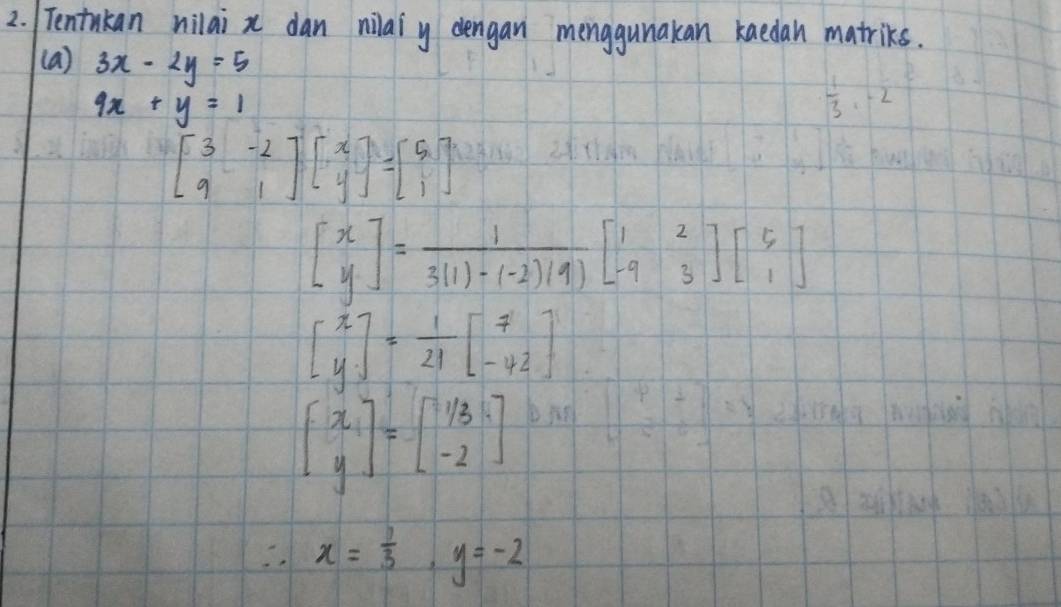 2. Tentukan nilai x dan nilai y dengan menggunakan kaedah matriks.
(a) 3x - 2y = 5
9x + y = 1
1/3, -2
[3 -2; 9 1] [x; y] = [5; 1]
[x; y] = 1/(3(1) - (-2)(9)) [1 2; -9 3] [5; 1]
[x; y] = 1/21 [7; -42]
[x; y] = [1/3; -2]
∴ x = 1/3, y = -2